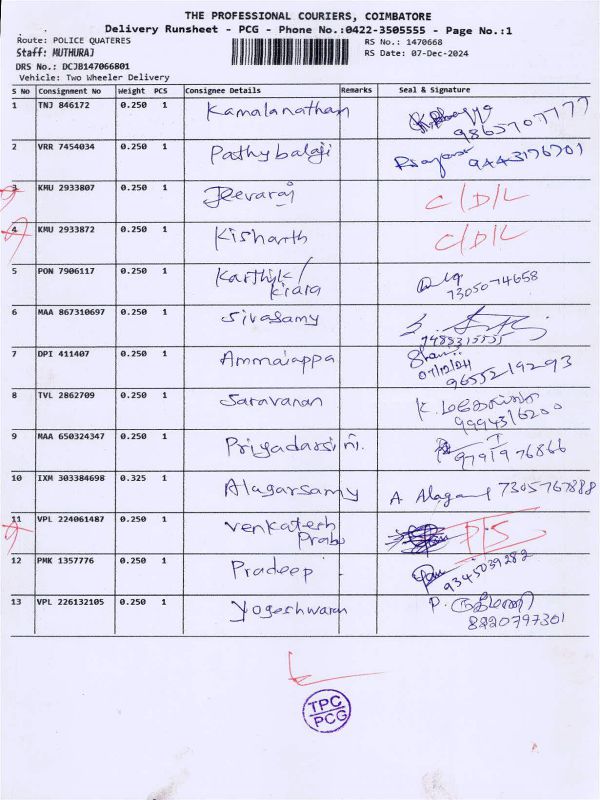 THE PROFESSIONAL COURIERS, COIMBATORE
Delivery Runsheet - PCG - Phone No.:0422-3505555 - Page No.:1
Route: POLICE QUATERES RS No.: 1470668
Staff: MUTHURAJ RS Date: 07-Dec-2024
DRS No.: DCJB147066801
Vehicle: Two Wheeler Delivery
S No Consignment No Weight PCS Consignee Details Remarks Seal & Signature
1 TNJ 846172 0.250 1 Kamalanathan
9865707777
2 VRR 7454034 0.250 1 Pathybalaji 9443176701
3 KMU 2933807 0.250 1 Jeevaraj C/D/L
4 KMU 2933872 0.250 1 Kishanth C/D/L
5 PON 7906117 0.250 1 Karthik/
Kiara 7305074658
6 MAA 867310697 0.250 1 Sivasamy
7 DPI 411407 0.250 1 Ammaiappa
07/12/24
9655219293
8 TVL 2862709 0.250 1 Saravanan
9994316200
9 MAA 650324347 0.250 1 Priyadarsini. 9791976866
10 IXM 303384698 0.325 1 Alagarsamy A Alagar 7305767888
11 VPL 224061487 0.250 1 Venkatesh D/S
Prabu
12 PMK 1357776 0.250 1 Pradeep 9345039282
13 VPL 226132105 0.250 1 Yogeshwaran
8220797301
TPC
PCG